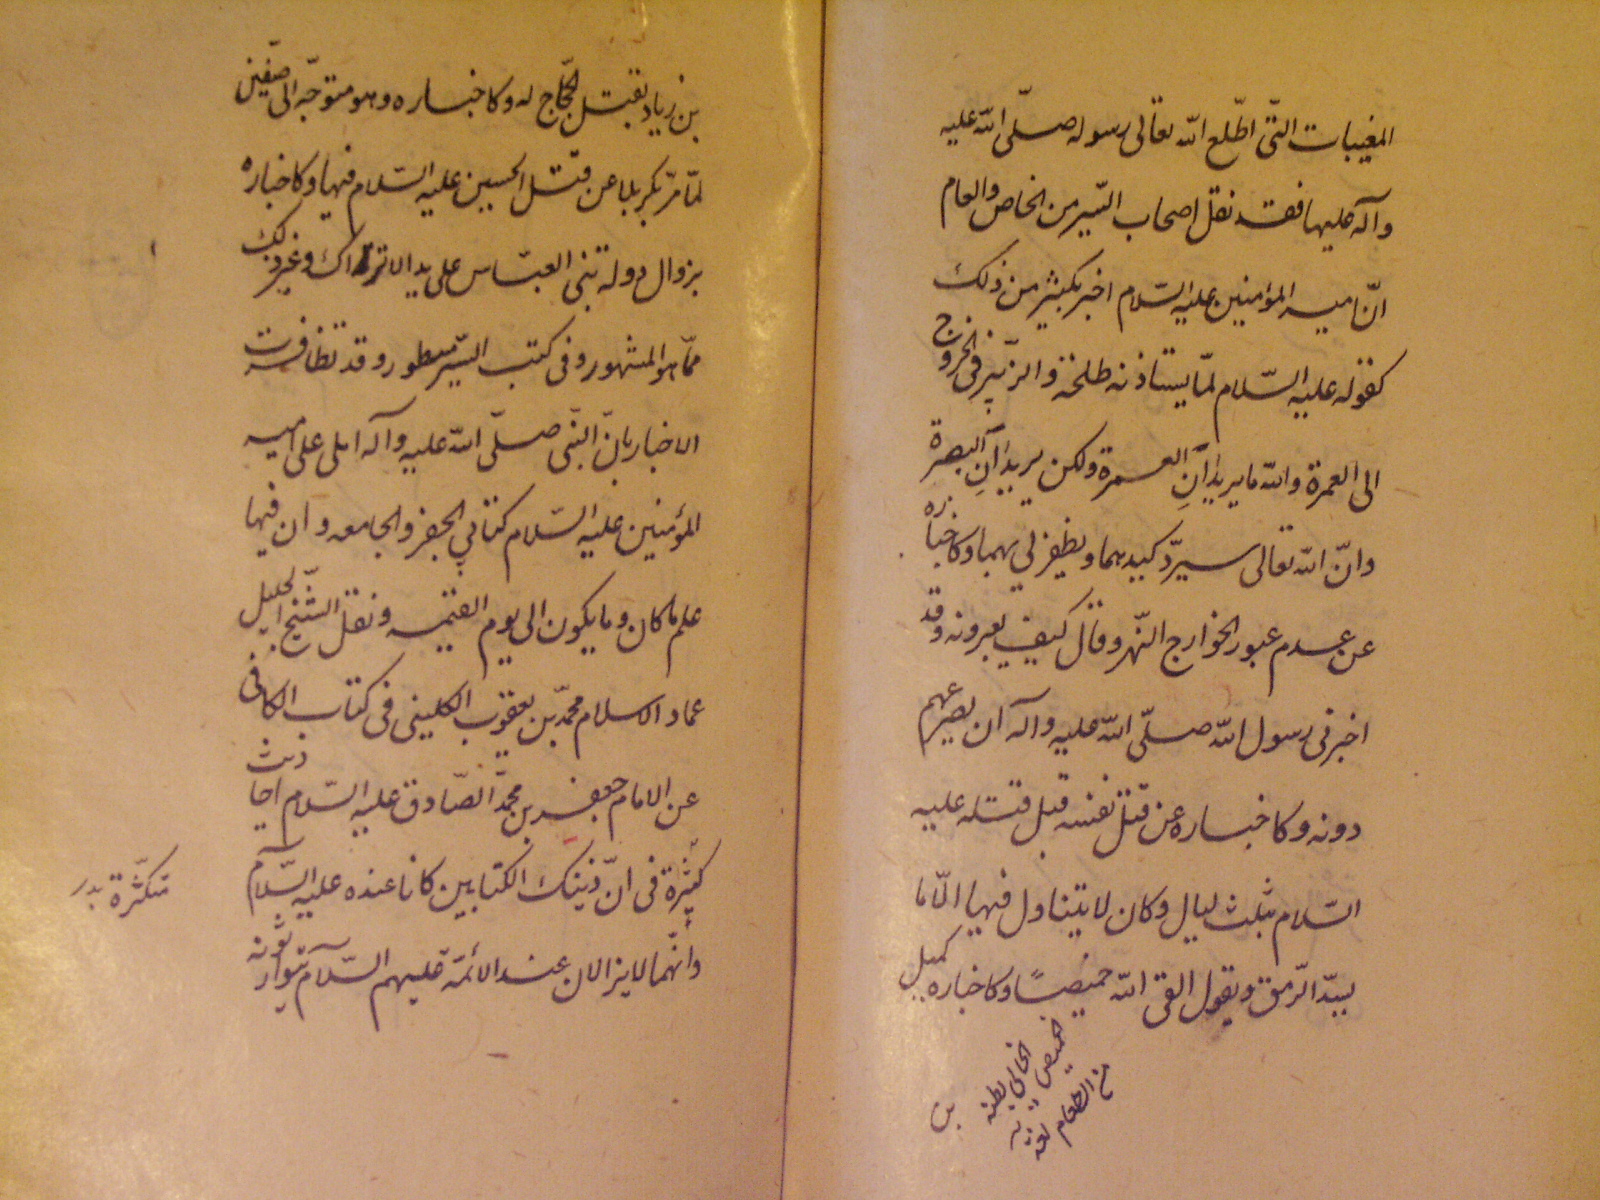 المغيبات التى اطّلع الله تعالى رسوله صلّى الله عليه
وآله عليها فقد نقل اصحاب السّير من الخاص والعام
انّ اميه المؤمنين عليه السّلام اخبر بكثير من ذلك
كقوله عليه السّلام لمّا يستاذنه طلحة والزّبير فى الخروج
الى العمرة والله ما يريدانِ العمرة ولكن يريدانِ البصرة
وانّ الله تعالى سيردّ كيدهما ويظفرني بهما وكاخباره
عن عدم عبور الخوارج النّهر وقال كيف يعبرونه وقد
اخبرنى رسول الله صلّى الله عليه وآله ان مصيرعهم
دونه وكاخباره عن قتل نفسه قبل قتله عليه
السّلام بثلث ليال وكان لا يتناول فيها الّا ما
يسدّ الرّمق ويقول القى الله خميصًا وكاخباره كميل
خميص الخالي بطنه
من الطعام
بن
بن زياد بقتل الحجّاج له وكاخباره وهو متوجّه الى صفّين
لمّا مرّ بكربلا عن قتل الحسين عليه السّلام فيها وكاخباره
بزوال دولة بنى العبّاس على يد الاتراك وغير ذلك
ممّا هو المشهور وفى كتب السّير مسطور وقد تظافرت
الاخبار بانّ النّبى صلّى الله عليه وآله املى على اميه
المؤمنين عليه السّلام كتابي الجفر والجامعه وان فيها
علم ما كان وما يكون الى يوم القيمه ونقل الشّيخ الجليل
عماد الاسلام محمّد بن يعقوب الكلينى فى كتاب الكافى
عن الامام جعفر بن محمّد الصّادق عليه السّلام احاديث
كثيرة فى انّ ذينك الكتابين كانا عنده عليه السّلام
متكثّرة بدر
وأنّهما لا يزالان عند الائمّة عليهم السّلام يتوارثونه